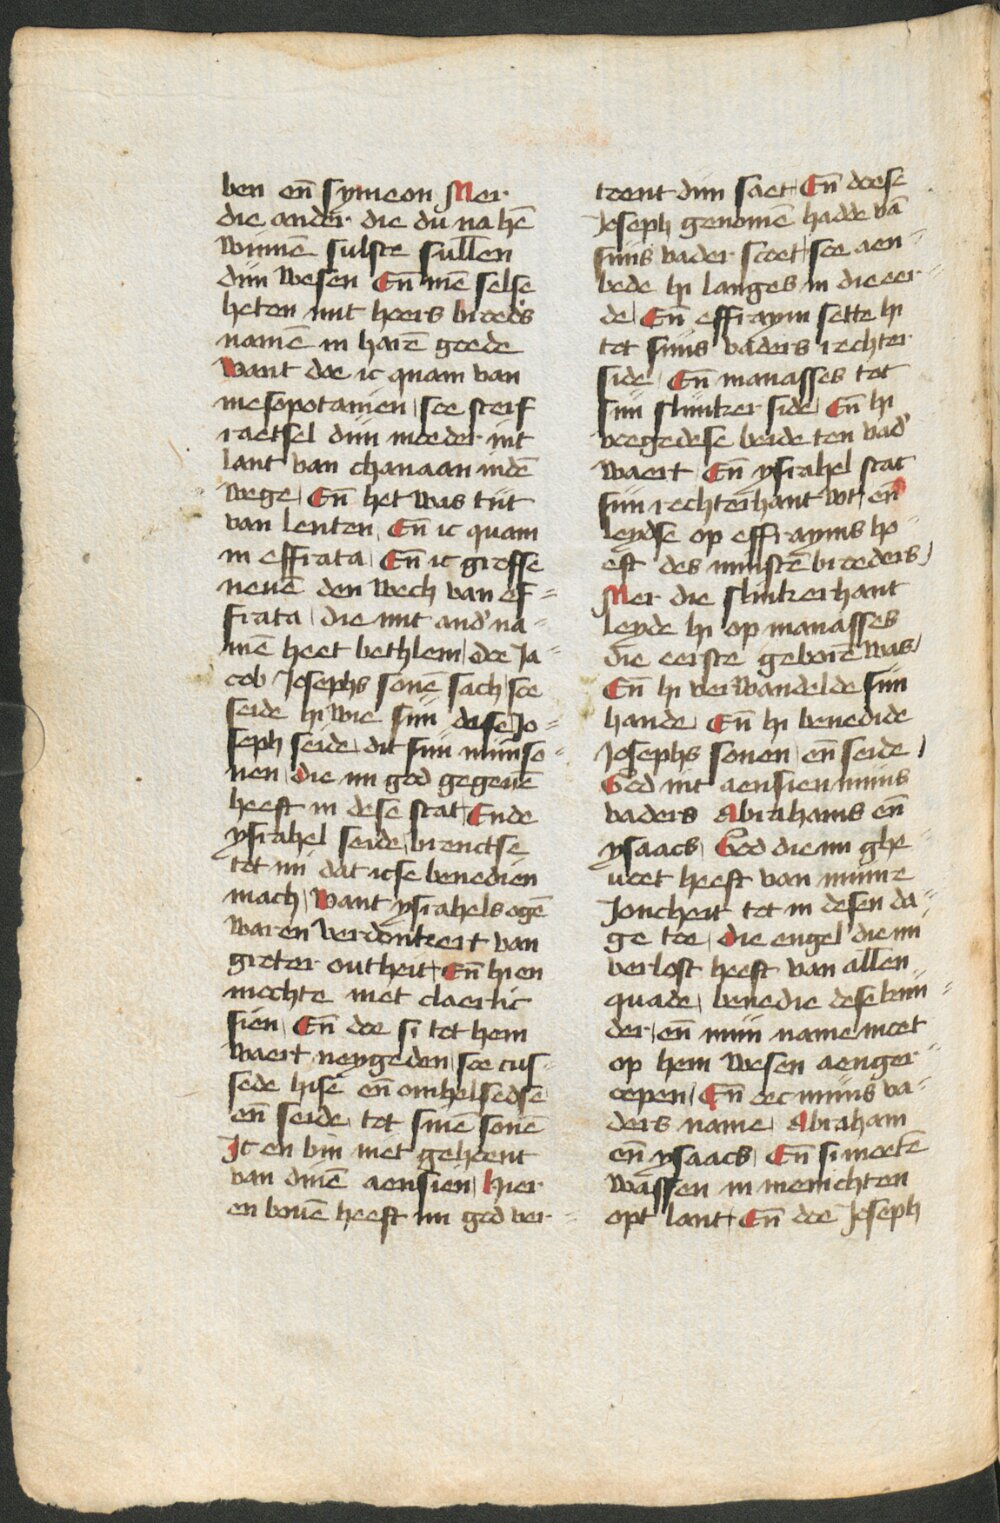 ben en̄ symeon Mer
die ander die du na hē
winnē sulste sullen
dijn wesen En̄ mē selse
heten mit hoers broed's
namē in harē goede
want doe ic quam van
mesopotamien soe sterf
raetsel dijn moeder int
lant van chanaan indē
wege En̄ het was tijt
van lenten En̄ ic quam
in effrata En̄ ic groffe
neuē den wech van ef=
frata die mit and' na=
mē heet bethlem doe Ja=
cob Josephs sonē sach soe
seide hi wie sijn dese Jo=
seph seide dit sijn mijn so=
nen die mi god gegeuē
heeft in dese stat Ende
ysrahel seide brenctse
tot mi dat icse benedien
mach want ysrahels ogē
waren verdonkert van
groter outheit En̄ hi en
mochte niet claerlic
sien En̄ doe si tot hem
waert neygeden soe cus=
sede hise en̄ omhelsedse
en̄ seide tot sinē sonē
Ic en bin niet gehoent
van dinē aensien hier
en bouē heeft mi god ver=
toent dijn saet En̄ doese
Joseph genomē hadde vā
sijns vader scoet soe aen=
bede hi langes in die eer=
de En̄ effraym sette hi
tot sijns vaders rechter
side En̄ manasses tot
sijn slinker side En̄ hi
voegedese beide ten vad'
waert En̄ ysrahel stac
sijn rechterhant wt en̄
leydse op effrayms ho=
eft des minstē broeders
Mer die slinkerhant
leyde hi op manasses
die eerste geborē was
En̄ hi verwandelde sijn
hande En̄ hi benedide
Josephs sonen en̄ seide
God int aensien mijns
vaders Abrahams en̄
ysaacs God die mi ghe=
uoet heeft van mijnre
Joncheit tot in desen da=
ge toe die engel die mi
verlost heeft van allen
quade benedie dese kin=
der en̄ mijn name moet
op hem wesen aenger=
oepen En̄ oec mijns va=
ders name Abraham
en̄ ysaacs En̄ si moetē
wassen in menichten
opt lant En̄ doe Joseph